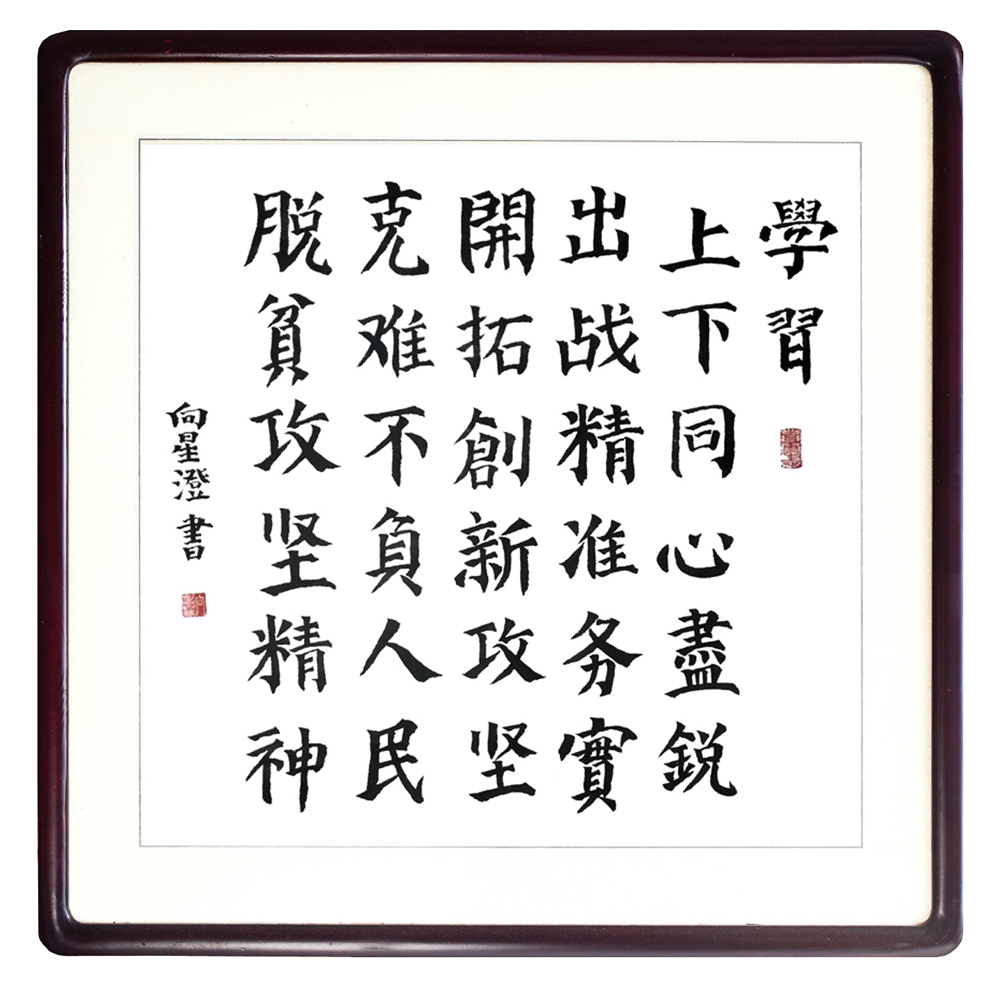 學習
上下同心盡鋭
出战精准务實
開拓創新攻坚
克难不負人民
脱貧攻坚精神
向星澄書